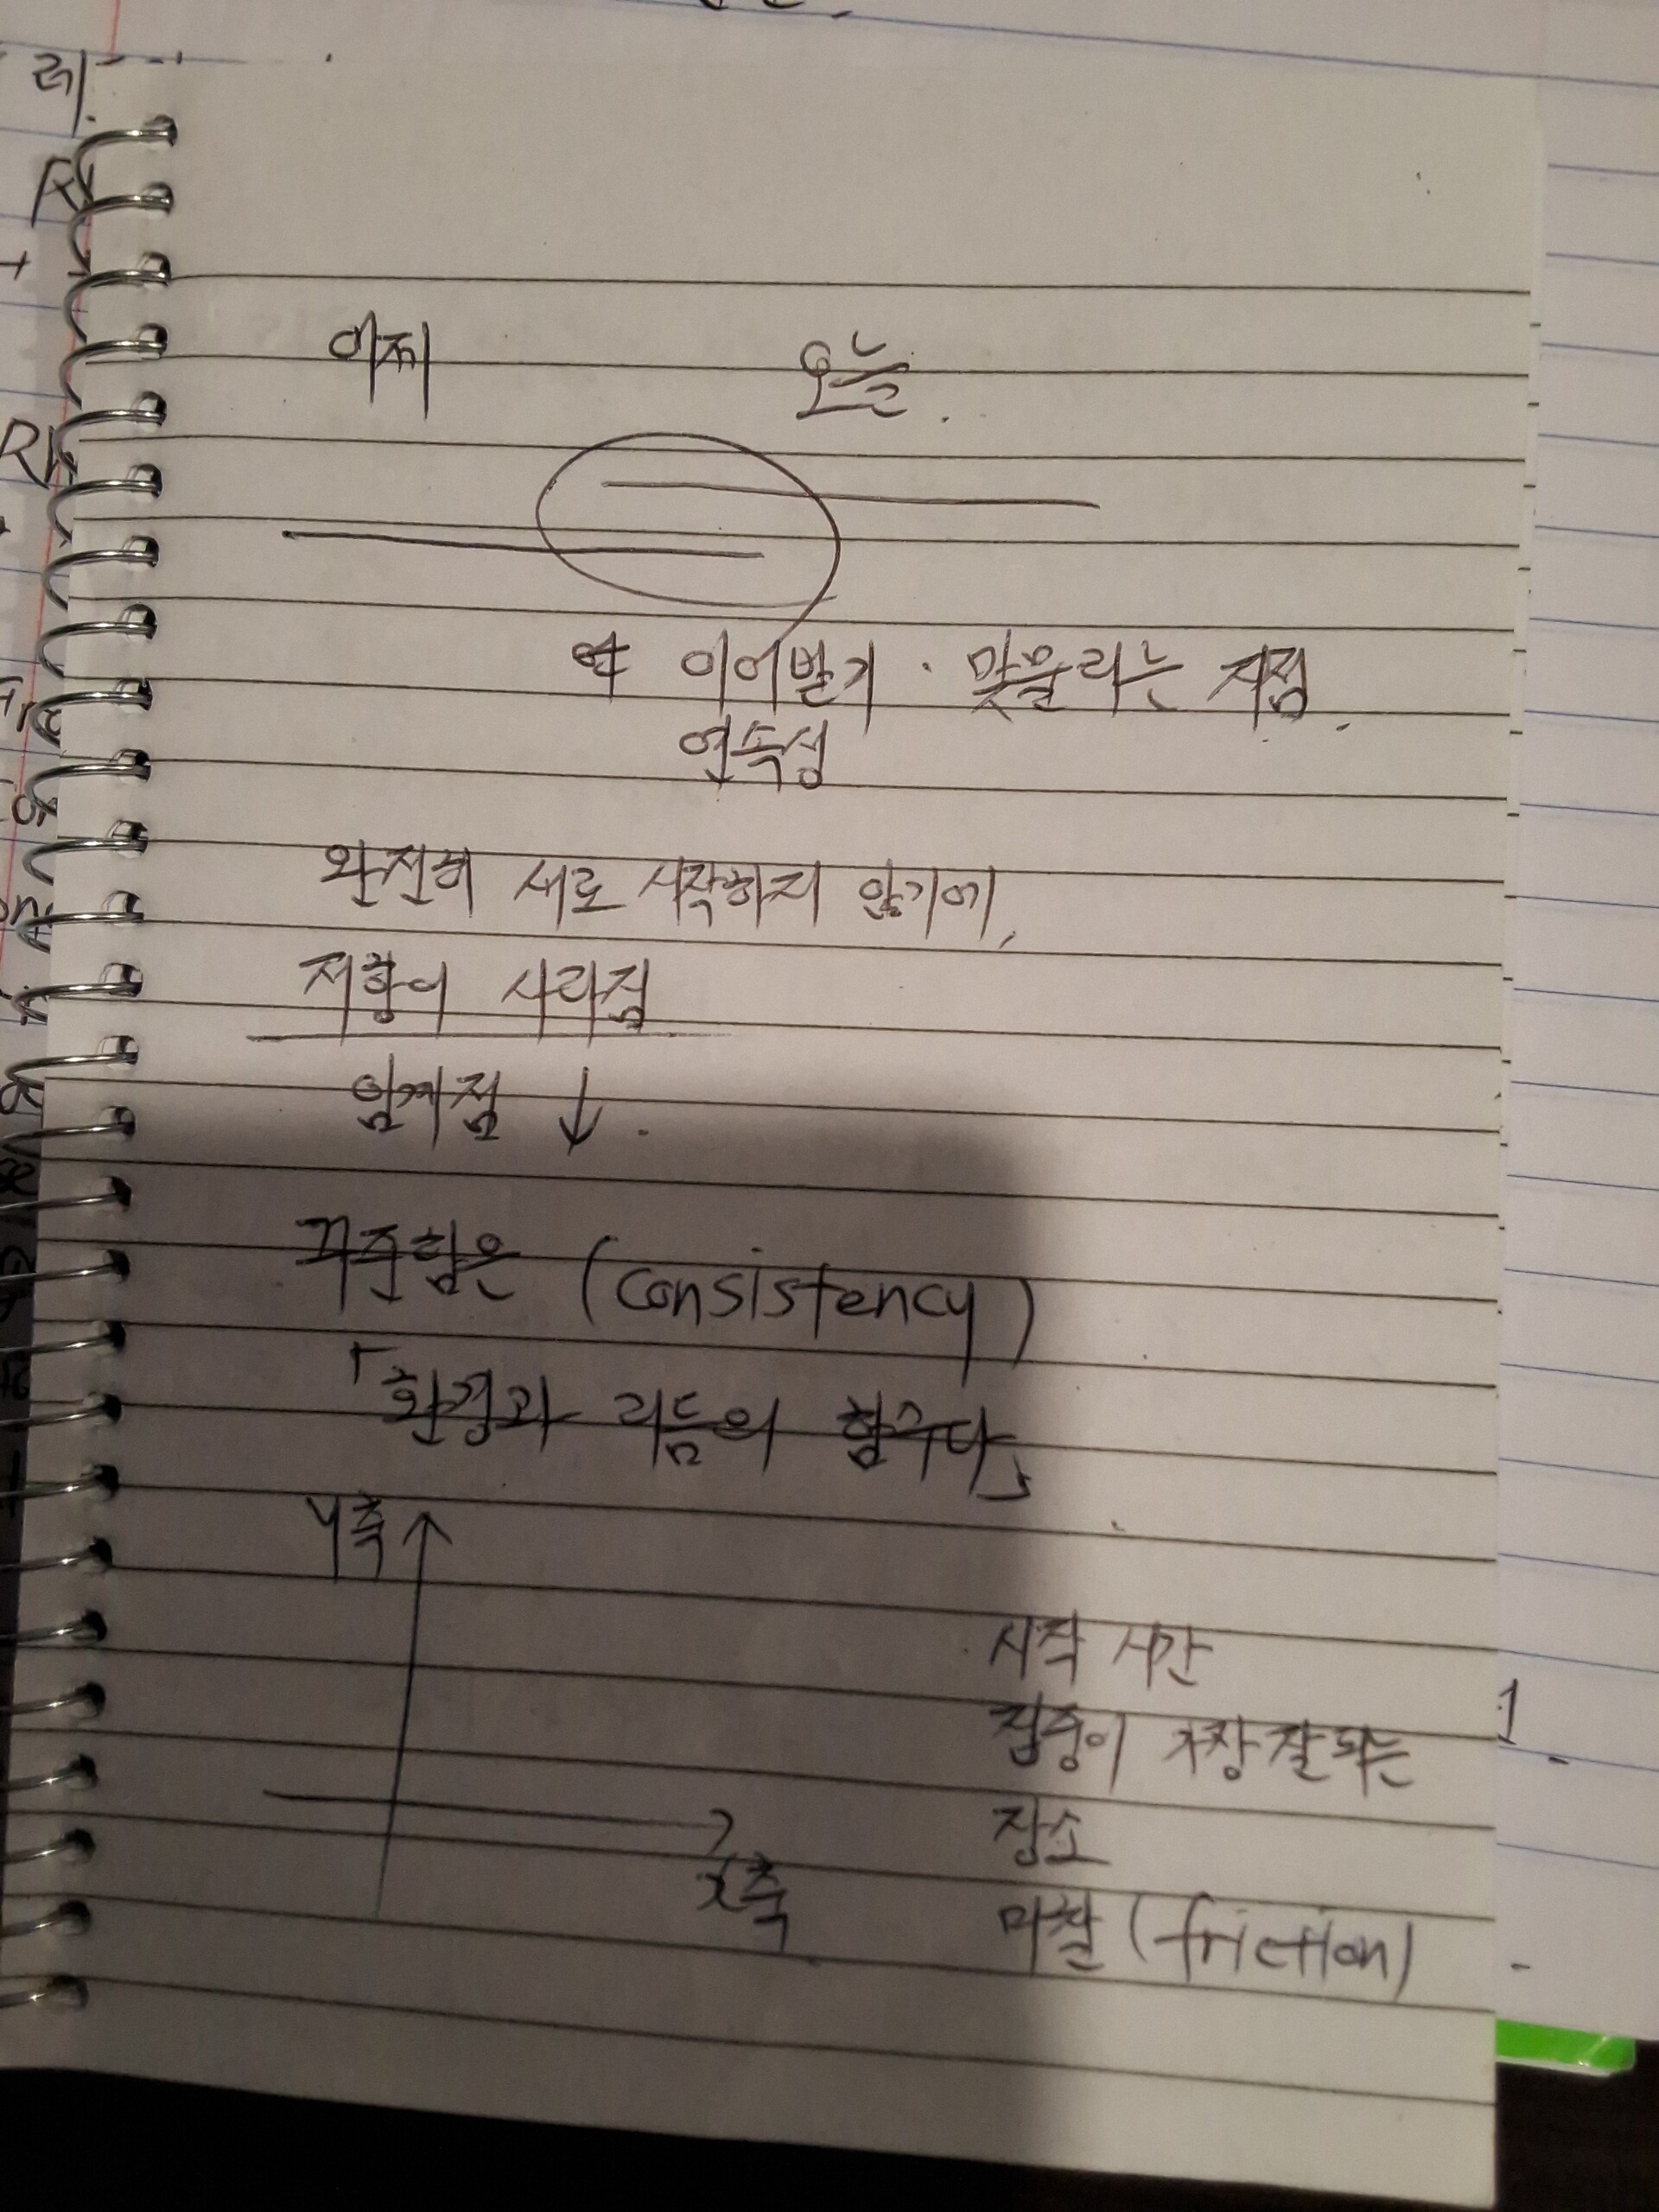 어제 오늘.
이어받기 · 맞물리는 지점.
연속성
완전히 새로 시작하지 않기에,
저항이 사라짐
임계점 ↓.
꾸준함은 (consistency)
「환경과 리듬의 함수다」
y축
시작 시간
집중이 가장 잘 되는
장소
x축
마찰 (friction)